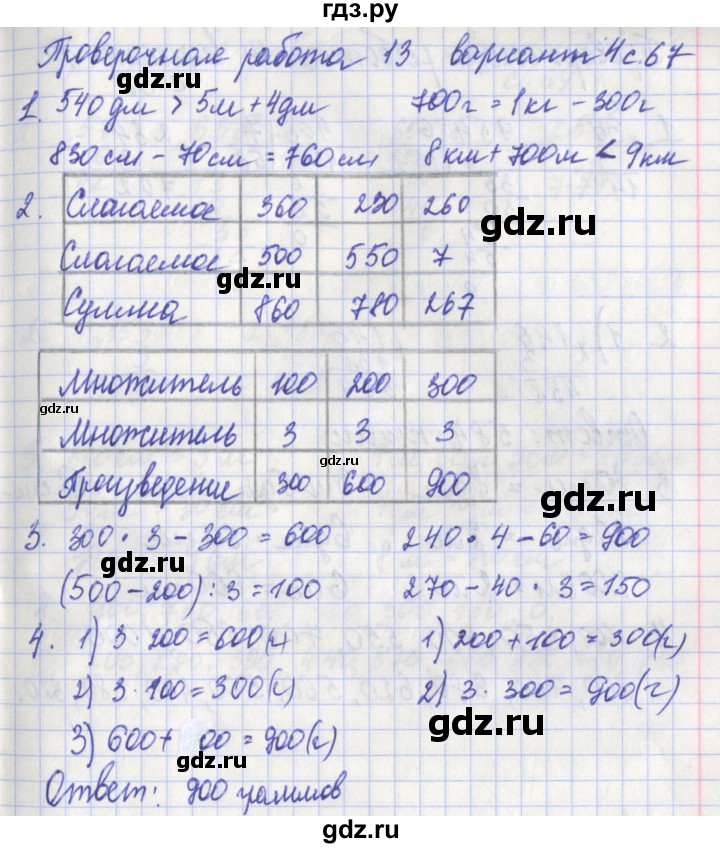 гдз.ру
Проверочная работа 13 вариант 4 с. 67
gdz.ru
1. 540 дм > 5м + 4дм 700г = 1кг - 300г
830 см - 70 см = 760 см 8 км + 700 м < 9 км
gdz.ru
2. Слагаемое 360 230 260
gdz.ru
Слагаемое 500 550 7
gdz.ru
Сумма 860 780 267
Множитель 100 200 300
gdz.ru
Множитель 3 3 3
gdz.ru
Произведение 300 600 900
gdz.ru
3. 300 · 3 - 300 = 600 240 · 4 - 60 = 900
gdz.ru
(500 - 200) : 3 = 100 270 - 40 · 3 = 150
4. 1) 3 · 200 = 600(г) 1) 200 + 100 = 300(г)
2) 3 · 100 = 300(г) 2) 3 · 300 = 900(г)
gdz.ru
3) 600 + 00 = 900(г)
gdz.ru
Ответ: 900 граммов
gdz.ru
gdz.ru